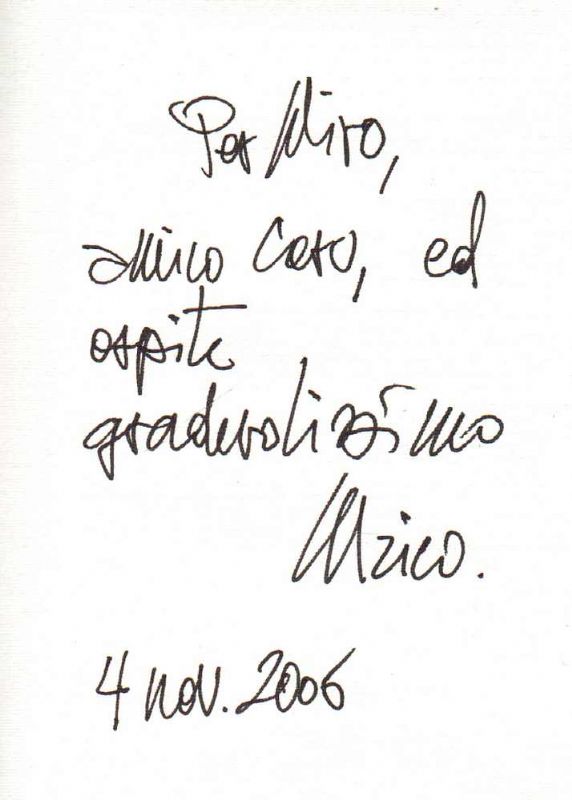 Per Miro,
amico caro, ed
ospite
gradevolissimo
4 nov. 2006